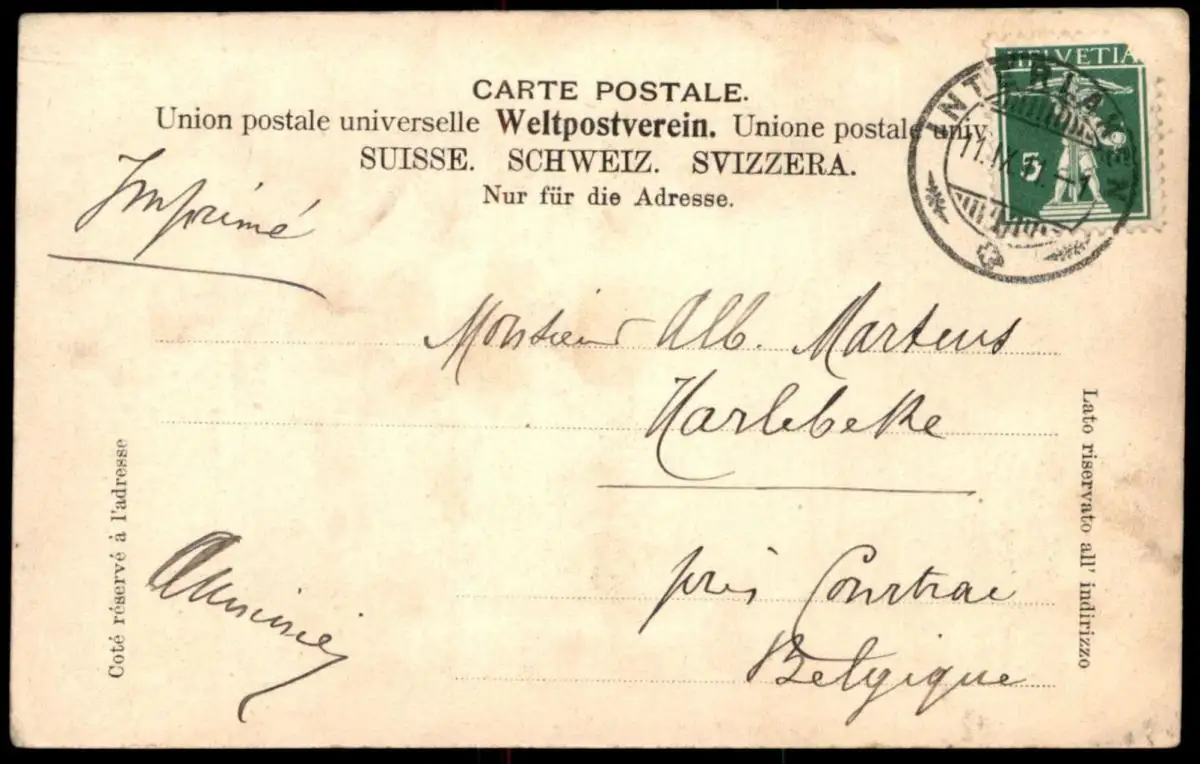 CARTE POSTALE.
Union postale universelle Weltpostverein. Unione postale univ.
SUISSE. SCHWEIZ. SVIZZERA.
Nur für die Adresse.
HELVETIA
5
INTERLAKEN
11.IX.11.-1
Imprimé
Monsieur Alb. Martens
Harlebeke
près Courtrai
Belgique
Coté réservé à l'adresse
Lato riservato all' indirizzo